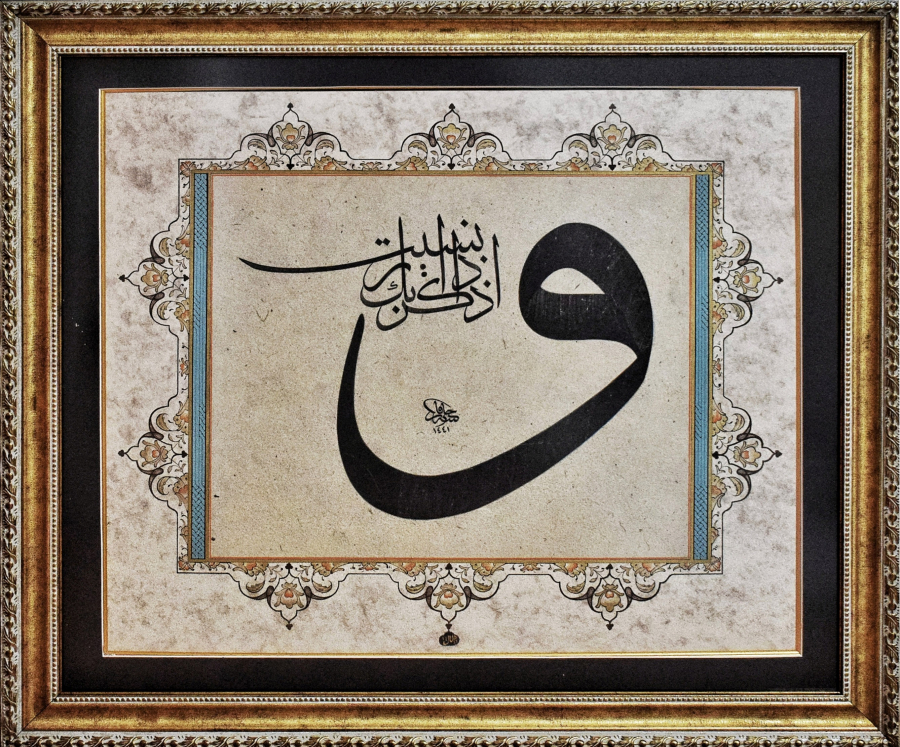 واذكر ربك إذا نسيت
١٤٤١